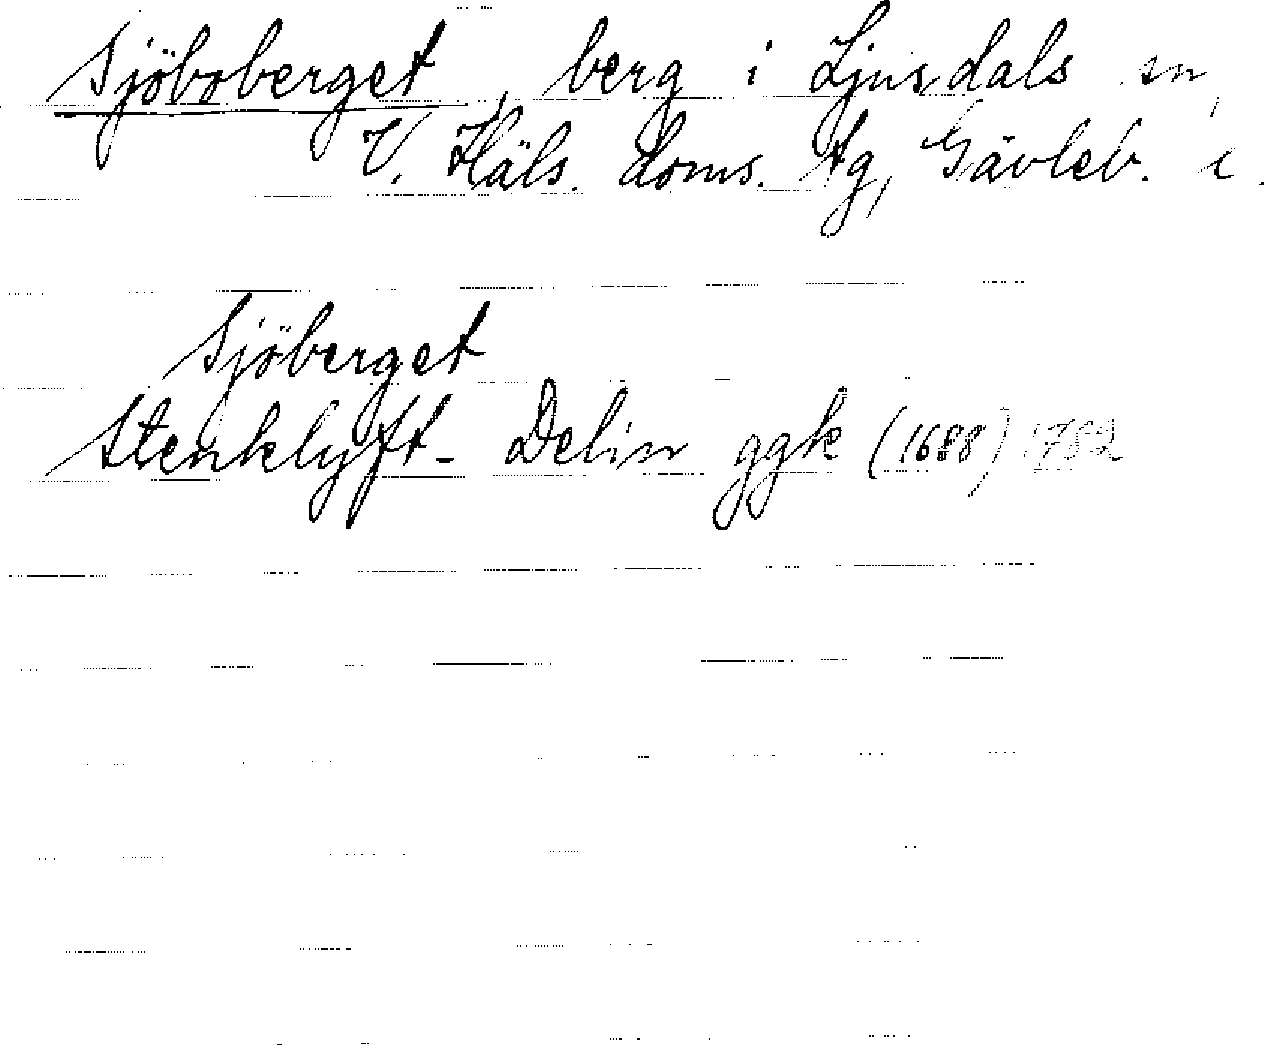 Sjöboberget, berg i Ljusdals sn,
V. Häls. doms. tg, Gävleb. l.
Sjöberget
Stenklyft- Delin ggk (1688) 1782